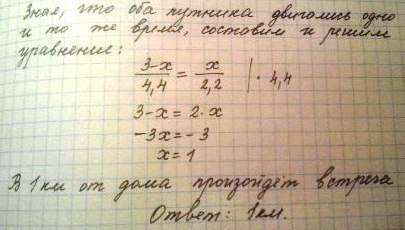 Зная, что оба путника двигались одно
и то же время, составим и решим
уравнение:
3-x/4,4 = x/2,2 | · 4,4
3-x = 2·x
-3x = -3
x = 1
В 1 км от дома произойдёт встреча
Ответ: 1 км.